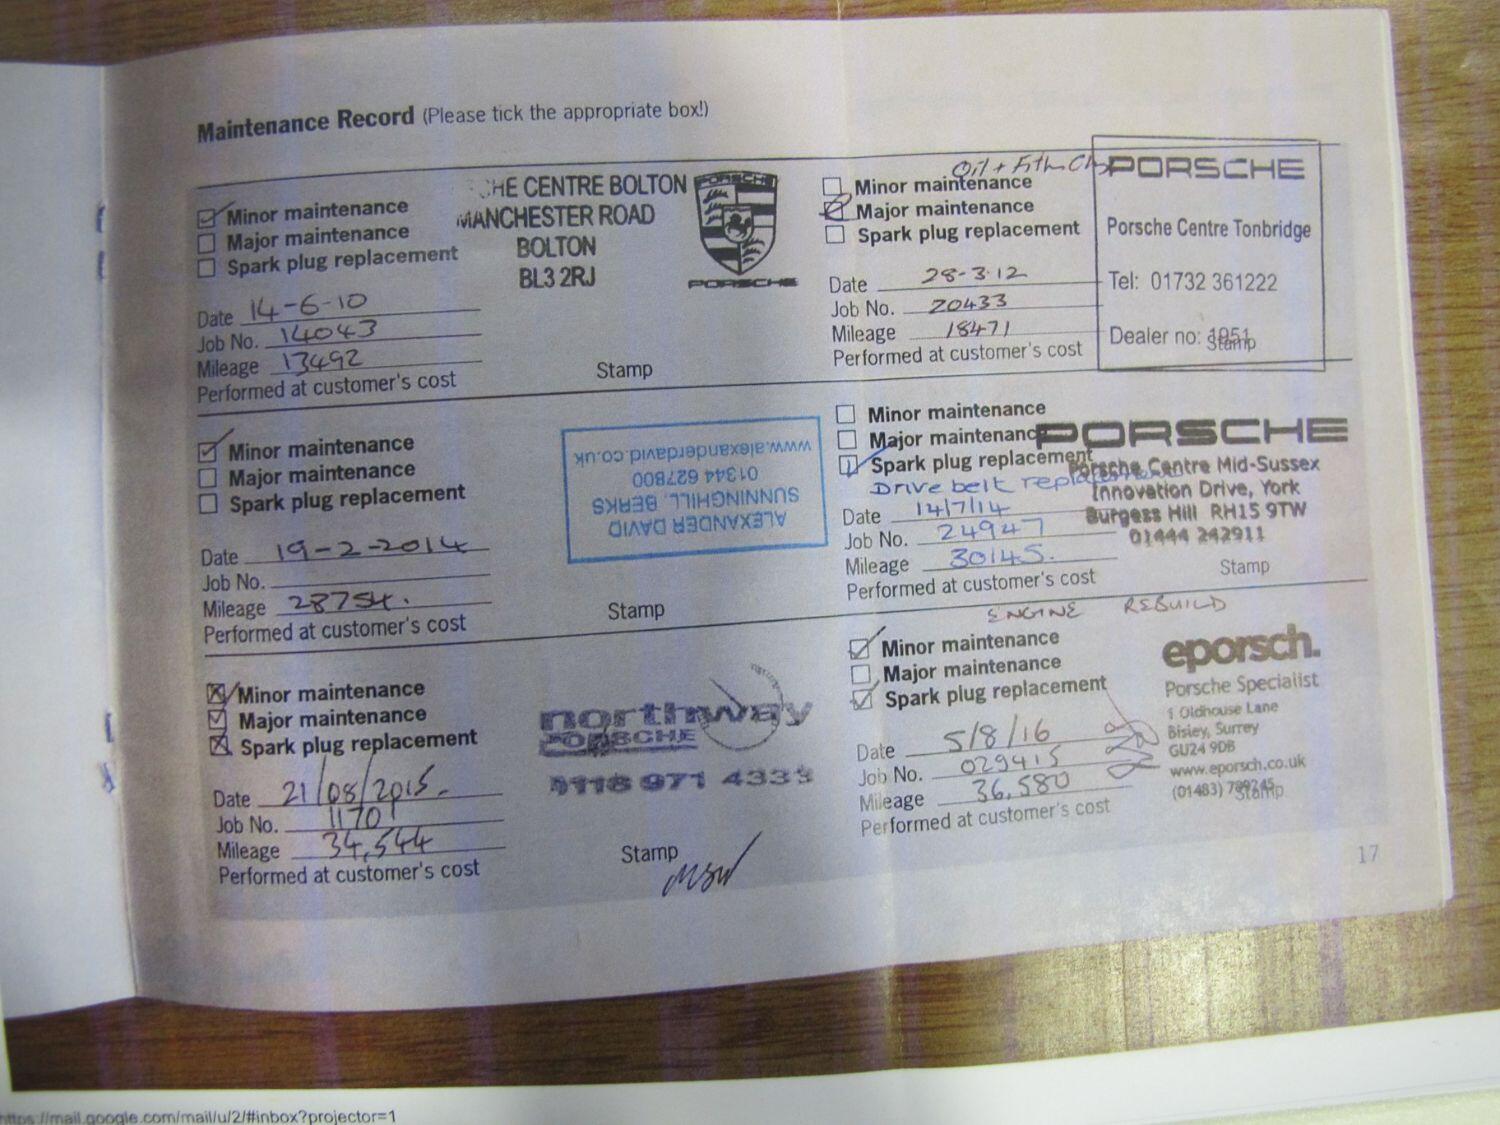 Maintenance Record (Please tick the appropriate box!)
Minor maintenance
Major maintenance
Spark plug replacement
Date 14-6-10
Job No. 14043
Mileage 13492
Performed at customer's cost
CHE CENTRE BOLTON
MANCHESTER ROAD
BOLTON
BL3 2RJ
PORSCHE
PORSCHE
Stamp
Oil +
Minor maintenance
Major maintenance
Spark plug replacement
Date 28-3-12
Job No. 20433
Mileage 18471
Performed at customer's cost
PORSCHE
Porsche Centre Tonbridge
Tel: 01732 361222
Dealer no: 1951
Stamp
Minor maintenance
Major maintenance
Spark plug replacement
Date 19-2-2014
Job No.
Mileage 28754.
Performed at customer's cost
ALEXANDER DAVID
SUNNINGHILL, BERKS
01344 627800
www.alexanderdavid.co.uk
Stamp
Minor maintenance
Major maintenance
Spark plug replacement
Drive belt replacement
Date 14/7/14
Job No. 24947
Mileage 30145.
Performed at customer's cost
PORSCHE
Porsche Centre Mid-Sussex
Innovation Drive, York
Burgess Hill RH15 9TW
01444 242911
Stamp
Minor maintenance
Major maintenance
Spark plug replacement
Date 21/08/2015.
Job No. 11701
Mileage 34,544
Performed at customer's cost
northway
PORSCHE
0118 971 4333
Stamp
ENGINE REBUILD
Minor maintenance
Major maintenance
Spark plug replacement
Date 5/8/16
Job No. 029415
Mileage 36,580
Performed at customer's cost
eporsch.
Porsche Specialist
1 Oldhouse Lane
Bisley, Surrey
GU24 9DB
www.eporsch.co.uk
(01483)
Stamp
17
https://mail.google.com/mail/u/2/#inbox?projector=1